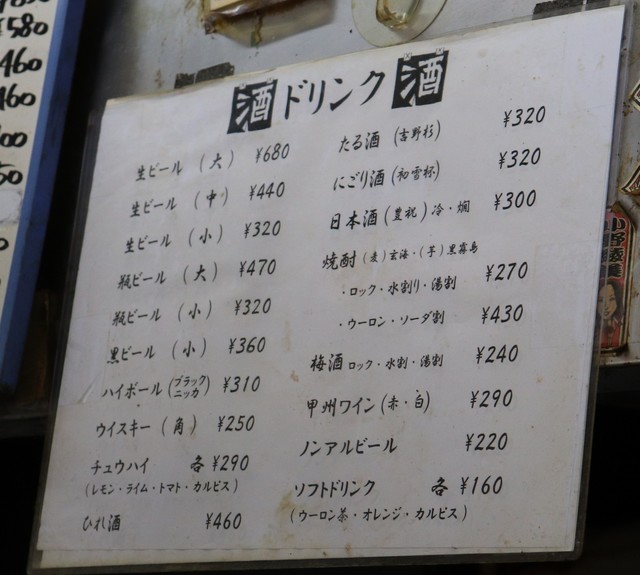 580
460
460
00
50
酒 ドリンク 酒
生ビール (大) ¥680
生ビール (中) ¥440
生ビール (小) ¥320
瓶ビール (大) ¥470
瓶ビール (小) ¥320
黒ビール (小) ¥360
ハイボール (ブラックニッカ) ¥310
ウイスキー (角) ¥250
チュウハイ 各 ¥290
(レモン・ライム・トマト・カルピス)
ひれ酒 ¥460
たる酒 (吉野杉) ¥320
にごり酒 (初雪杯) ¥320
日本酒 (豊祝) 冷・燗 ¥300
焼酎 (麦) 玄海・(芋) 黒霧島
・ロック・水割り・湯割 ¥270
・ウーロン・ソーダ割 ¥430
梅酒 ロック・水割・湯割 ¥240
甲州ワイン (赤・白) ¥290
ノンアルビール ¥220
ソフトドリンク 各 ¥160
(ウーロン茶・オレンジ・カルピス)